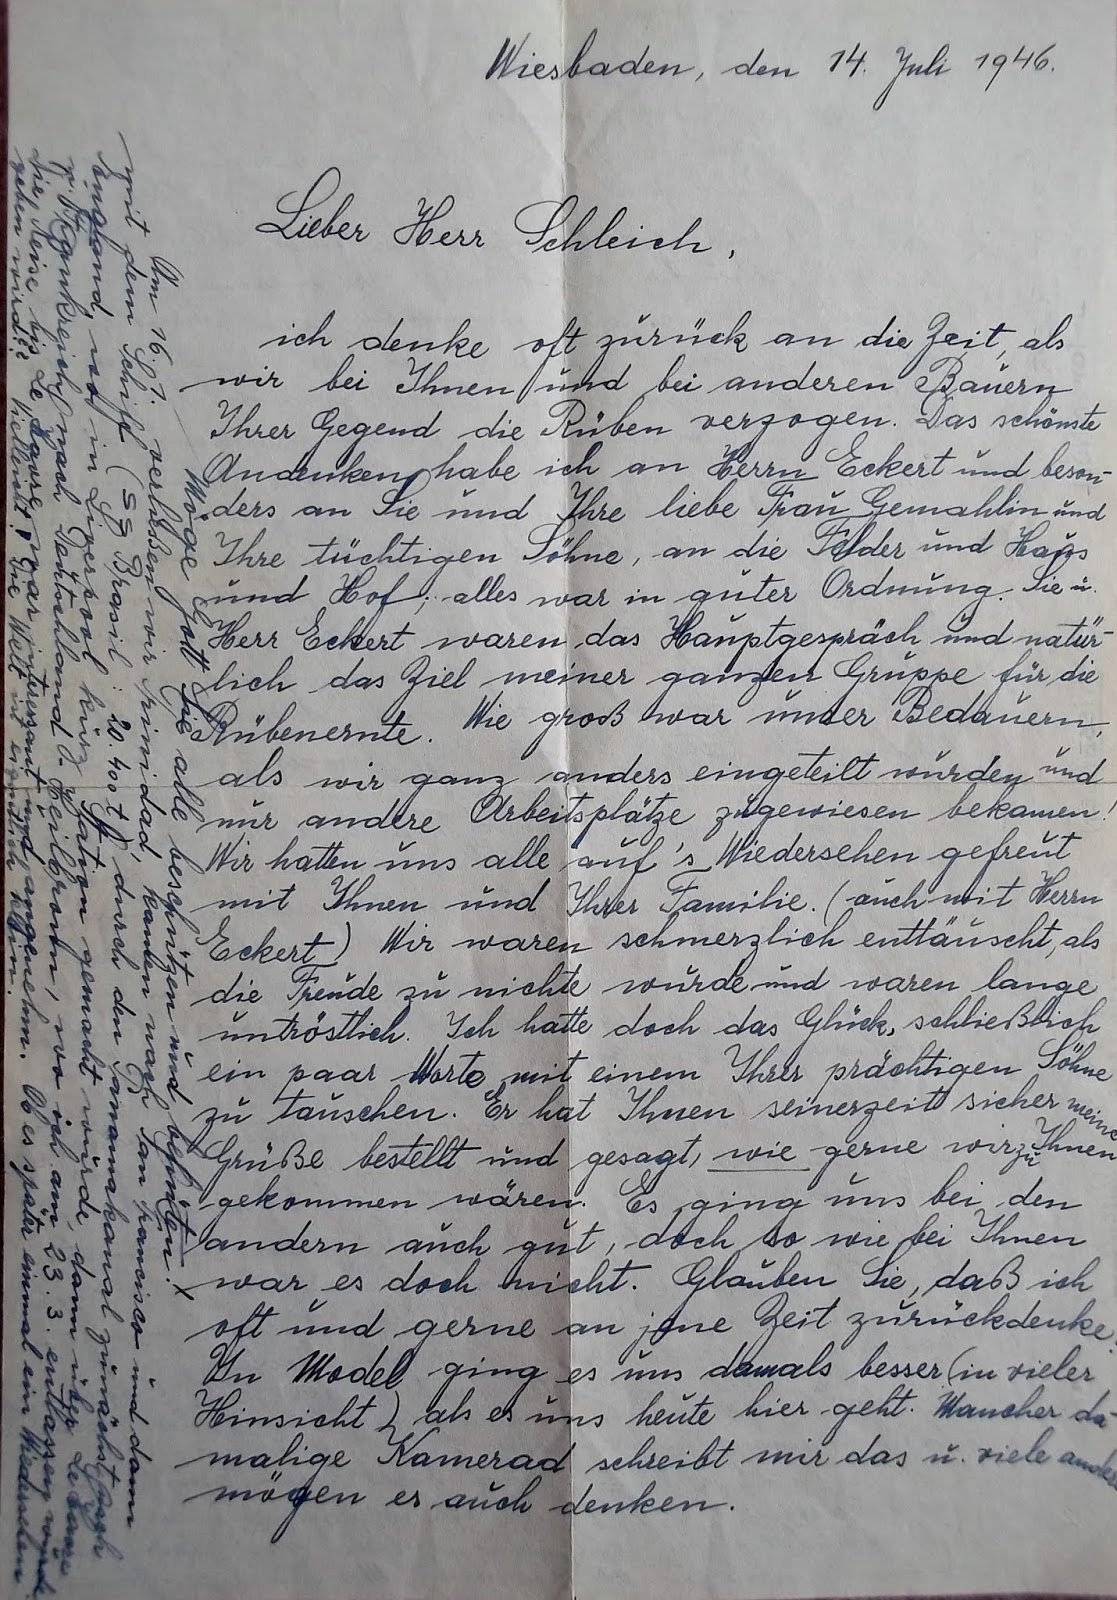 Wiesbaden, den 14. Juli 1946.
Lieber Herr Schleich,
ich denke oft zurück an die Zeit, als
wir bei Ihnen und bei anderen Bauern
Ihrer Gegend die Rüben verzogen. Das schönste
Andenken habe ich an Herrn Eckert und beson-
ders an Sie und Ihre liebe Frau Gemahlin und
Ihre tüchtigen Söhne, an die Felder und Haus
und Hof; alles war in guter Ordnung. Sie u.
Herr Eckert waren das Hauptgespräch und natür-
lich das Ziel meiner ganzen Gruppe für die
Rübenernte. Wie groß war unser Bedauern,
als wir ganz anders eingeteilt wurden und
nur andere Arbeitsplätze zugewiesen bekamen!
Wir hatten uns alle auf's Wiedersehen gefreut
mit Ihnen und Ihrer Familie. (auch mit Herrn
Eckert) Wir waren schmerzlich enttäuscht, als
die Freude zu nichte wurde und waren lange
untröstlich. Ich hatte doch das Glück, schließlich
ein paar Worte mit einem Ihrer prächtigen Söhne
zu tauschen. Er hat Ihnen seinerzeit sicher meine
Grüße bestellt und gesagt, wie gerne wir zu Ihnen
gekommen wären. Es ging uns bei den
andern auch gut, doch so wie bei Ihnen
war es doch nicht. Glauben Sie, daß ich
oft und gerne an jene Zeit zurückdenke!
In Model ging es uns damals besser (in vieler
Hinsicht) als es uns heute hier geht. Mancher da-
malige Kamerad schreibt mir das u. viele andere
mögen es auch denken.
Möge Gott Sie alle beschützen und behüten. x
Am 16.01. verließen wir Trinidad, kamen nach San Francisco und dann
mit dem Schiff (SS Brasil: 20.400 t), durch den Panamakanal zunächst nach
England, wo in Liverpool kurz Station gemacht wurde, dann über Le Havre
nach Deutschland (. Heilbronn, wo ich am 23.3. entlassen wurde
die Reise bis Le Havre war interessant und angenehm. Ob es später einmal ein Wiedersehen
geben wird?? Vielleicht! Die Welt ist klein.